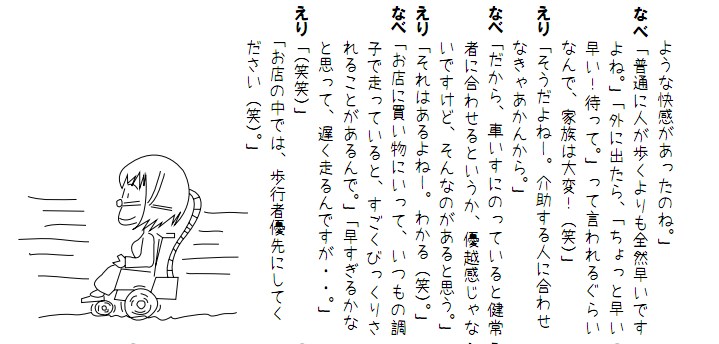 ような快感があったのね。」
なべ「普通に人が歩くよりも全然早いです
よね。」「外に出たら、「ちょっと早い
早い!待って。」って言われるぐらい
なんで、家族は大変!(笑)」
えり「そうだよねー。介助する人に合わせ
なきゃあかんから。」
なべ「だから、車いすにのっていると健常
者に合わせるというか、優越感じゃな
いですけど、そんなのがあると思う。」
えり「それはあるよねー。わかる(笑)。」
なべ「お店に買い物にいって、いつもの調
子で走っていると、すごくびっくりさ
れることがあるんで。」「早すぎるかな
と思って、遅く走るんですが・・。」
えり「(笑笑)」
「お店の中では、歩行者優先にしてく
ださい(笑)。」